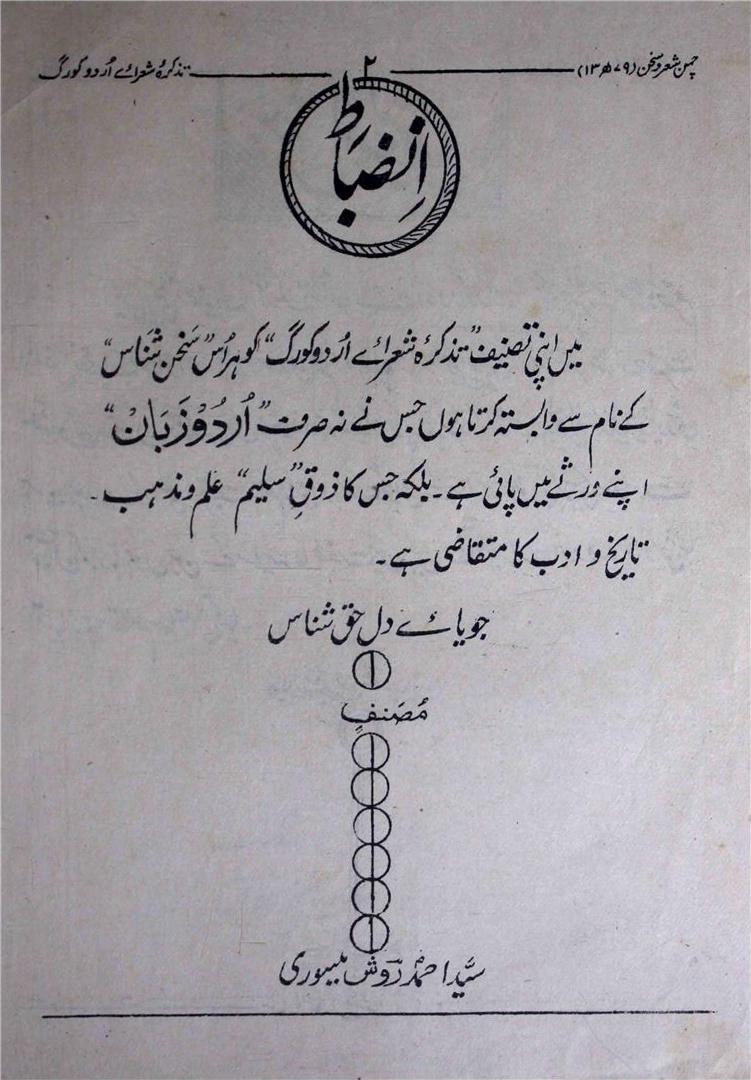 چمن شعر و سخن (۱۳۷۹ھ) ۲ تذکرۂ شعرائے اُردو کورگ
اِنضباط
میں اپنی تصنیف "تذکرۂ شعرائے اُردو کورگ" کو ہر اُس "سَخن شَناس"
کے نام سے وابستہ کرتا ہوں جس نے نہ صرف "اُردُو زَبَانْ"
اپنے ورثے میں پائی ہے۔ بلکہ جس کا ذوقِ "سلیم" علم و مذہب۔
تاریخ و ادب کا متقاضی ہے۔
جویائے دل حق شناس
مُصَنفِ
سیّد احمد رَوِش میسوری